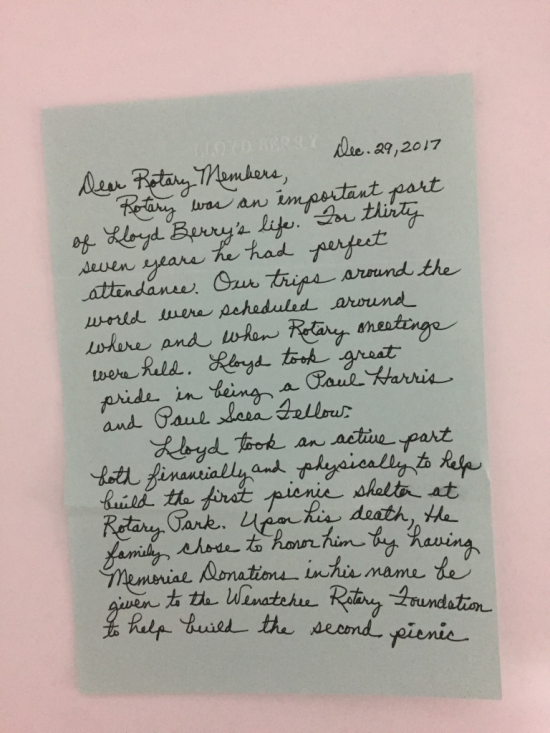 Dec. 29, 2017
Dear Rotary Members,
Rotary was an important part
of Lloyd Berry's life. For thirty
seven years he had perfect
attendance. Our trips around the
world were scheduled around
where and when Rotary meetings
were held. Lloyd took great
pride in being a Paul Harris
and Paul Scea Fellow.
Lloyd took an active part
both financially and physically to help
build the first picnic shelter at
Rotary Park. Upon his death, the
family chose to honor him by having
Memorial Donations in his name be
given to the Wenatchee Rotary Foundation
to help build the second picnic